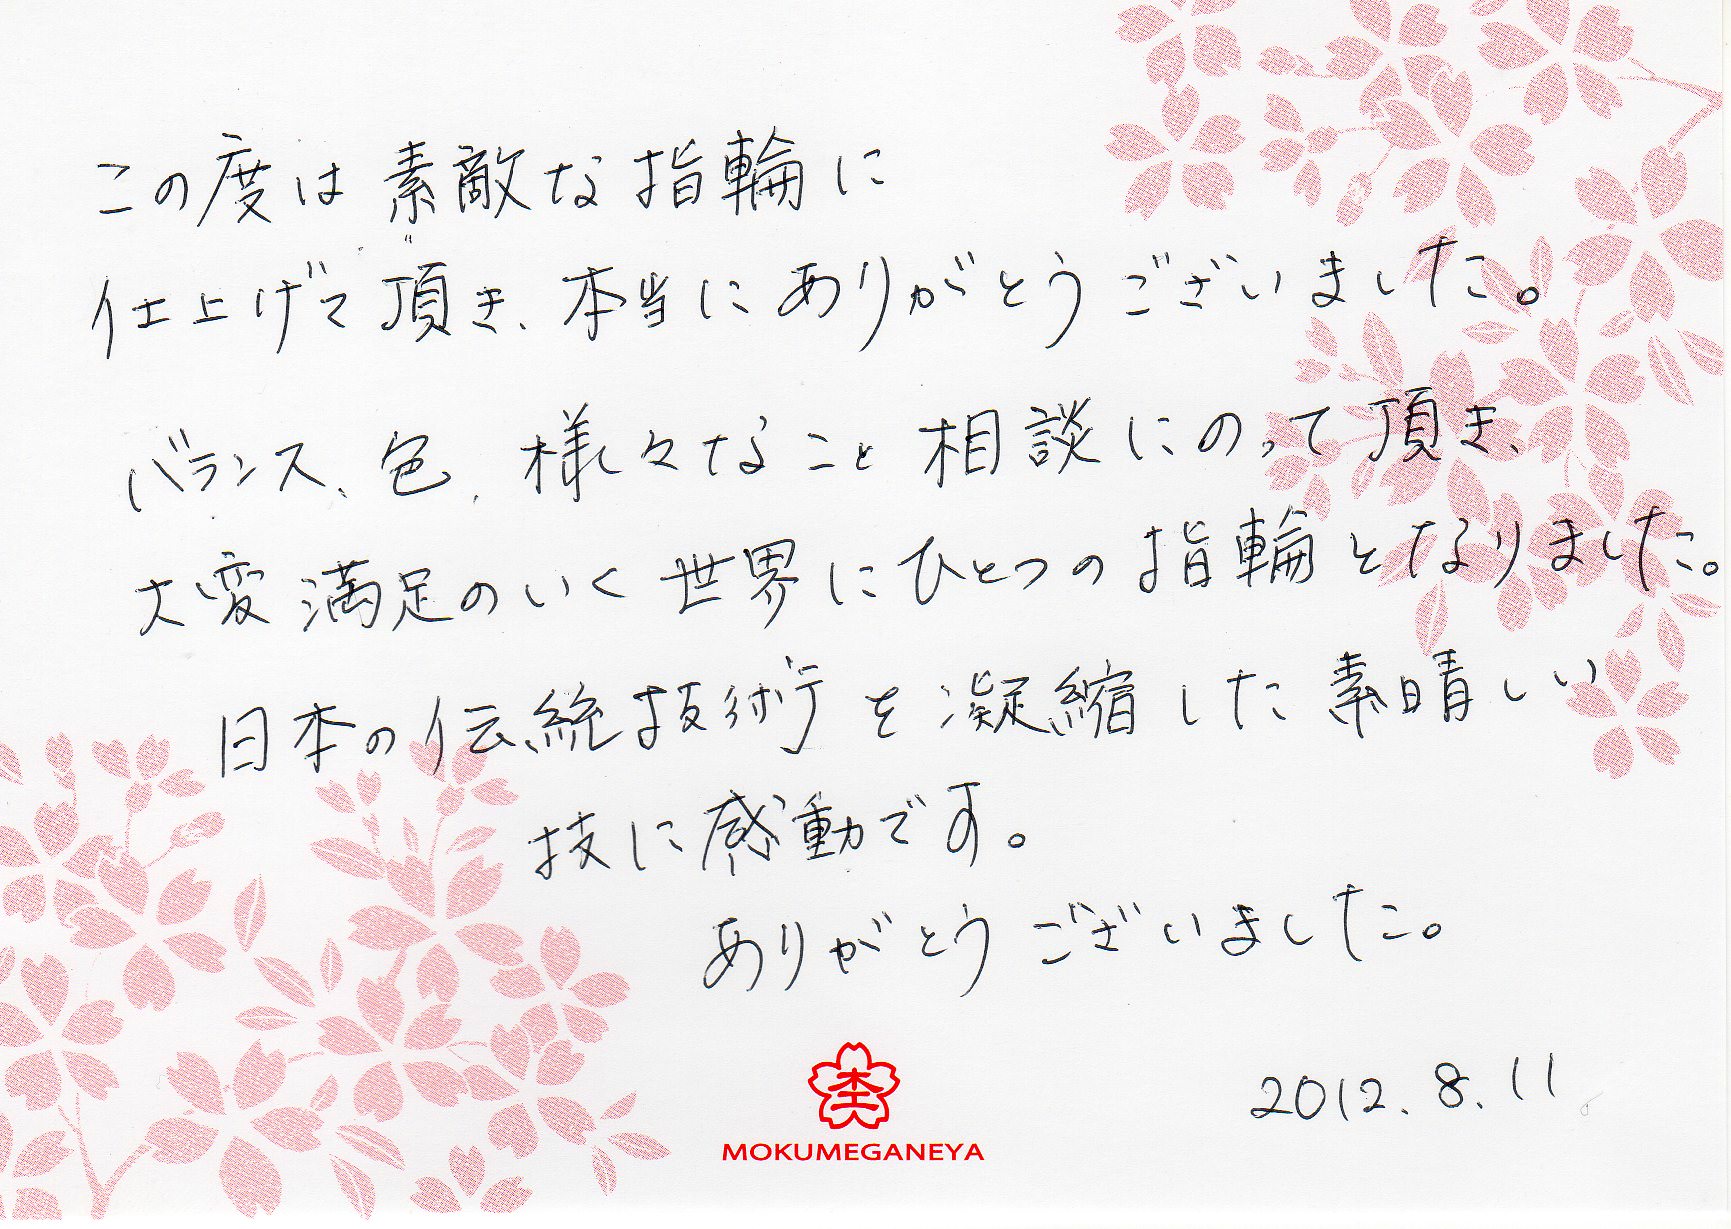 この度は素敵な指輪に
仕上げて頂き、本当にありがとうございました。
バランス、色、様々なこと相談にのって頂き、
大変満足のいく世界にひとつの指輪となりました。
日本の伝統技術を凝縮した素晴しい
技に感動です。
ありがとうございました。
MOKUMEGANEYA
2012.8.11